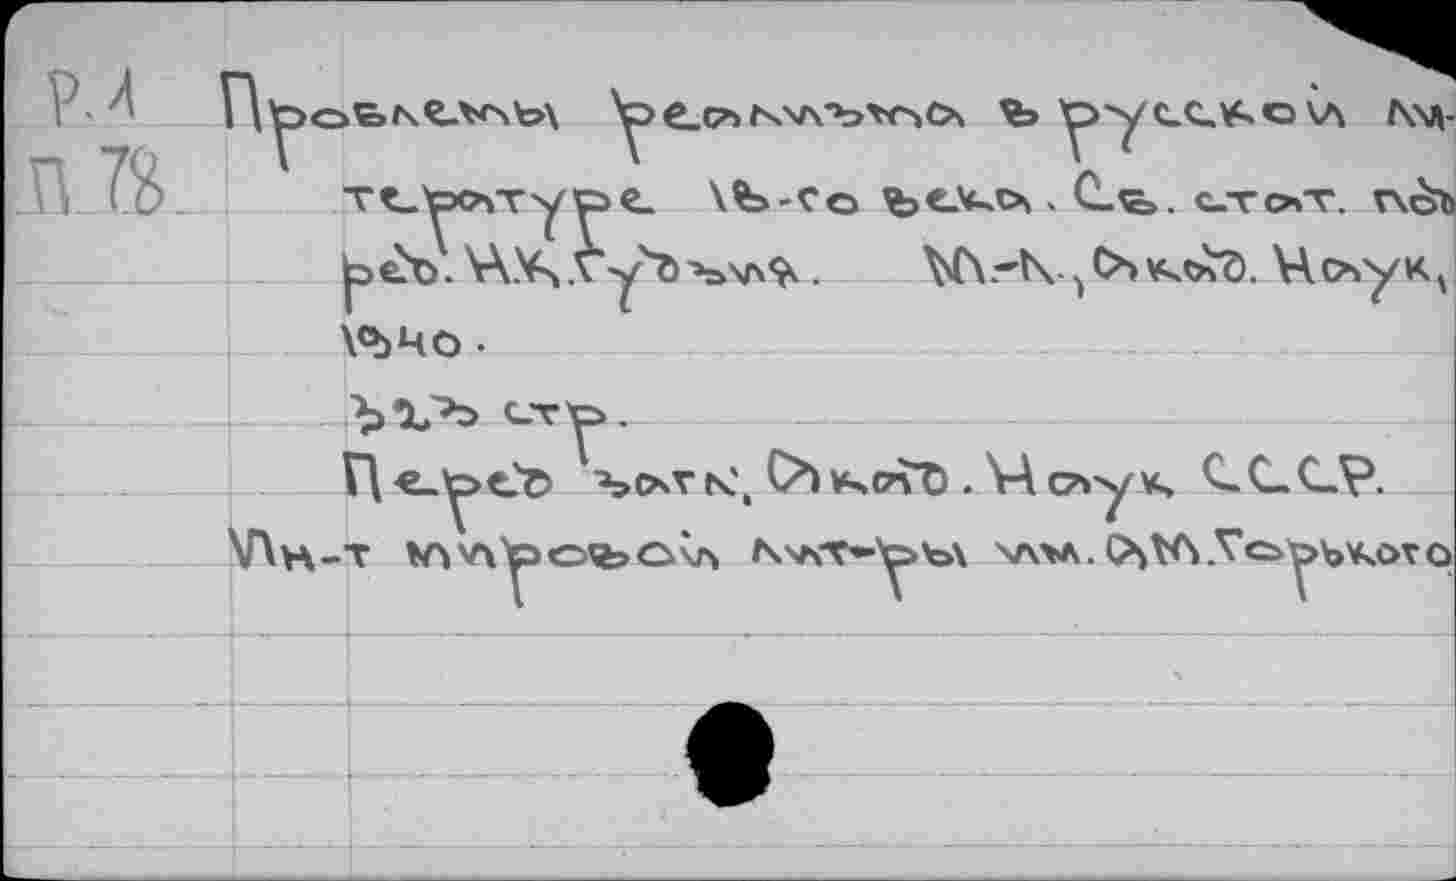 Р.Л Проблемы реализма в русской ли-
П 78 тературе 18-го века. Сб. стат. под
ред. Н.К.Гудзия. М.-Л., Акад. Наук,
1940.
323 стр.
Перед загл. Акад. Наук СССР.
Ин-т мировой лит-ры им. А.М.Горького